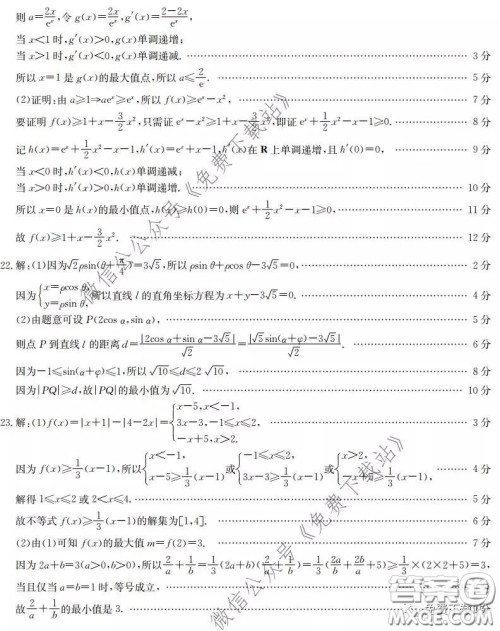 则 a=2x/eˣ,令 g(x)=2x/eˣ,g′(x)=(2-2x)/eˣ,
当 x<1 时,g′(x)>0,g(x)单调递增;
当 x>1 时,g′(x)<0,g(x)单调递减. 3 分
所以 x=1 是 g(x)的最大值点,所以 a≤2/e. 5 分
(2)证明:由 a≥1⇒aeˣ≥eˣ,所以 f(x)≥eˣ-x², 7 分
要证明 f(x)≥1+x-3/2x²,只需证 eˣ-x²≥1+x-3/2x²,即证 eˣ+1/2x²-x-1≥0. 8 分
记 h(x)=eˣ+1/2x²-x-1,h′(x)=eˣ+x-1,h′(x)在 R 上单调递增,且 h′(0)=0, 9 分
当 x<0 时,h′(x)<0,h(x)单调递减;
当 x>0 时,h′(x)>0,h(x)单调递增. 10 分
所以 x=0 是 h(x)的最小值点,h(x)≥h(0)=0,则 eˣ+1/2x²-x-1≥0, 11 分
故 f(x)≥1+x-3/2x². 12 分
22.解:(1)因为√2ρsin(θ+π/4)=3√5,所以 ρsin θ+ρcos θ-3√5=0, 2 分
因为{x=ρcos θ, y=ρsin θ,所以直线 l 的直角坐标方程为 x+y-3√5=0. 4 分
(2)由题意可设 P(2cos α,sin α), 5 分
则点 P 到直线 l 的距离 d=|2cos α+sin α-3√5|/√2=|√5sin(α+φ)-3√5|/√2. 6 分
因为-1≤sin(α+φ)≤1,所以√10≤d≤2√10. 8 分
因为|PQ|≥d,故|PQ|的最小值为√10. 10 分
23.解:(1)f(x)=|x+1|-|4-2x|={x-5,x<-1, 3x-3,-1≤x≤2, -x+5,x>2. 3 分
因为 f(x)≥1/3(x-1),所以{x<-1, x-5≥1/3(x-1)或{-1≤x≤2, 3x-3≥1/3(x-1)或{x>2, -x+5≥1/3(x-1), 4 分
解得 1≤x≤2 或 2<x≤4. 5 分
故不等式 f(x)≥1/3(x-1)的解集为[1,4]. 6 分
(2)由(1)可知 f(x)的最大值 m=f(2)=3. 7 分
因为 2a+b=3(a>0,b>0),所以2/a+1/b=1/3(2a+b)(2/a+1/b)=1/3(2a/b+2b/a+5)≥1/3×(2×2+5)=3,
当且仅当 a=b=1 时,等号成立,
故2/a+1/b的最小值是 3.
微信公众号《免费下载站》
微信公众号《免费下载站》